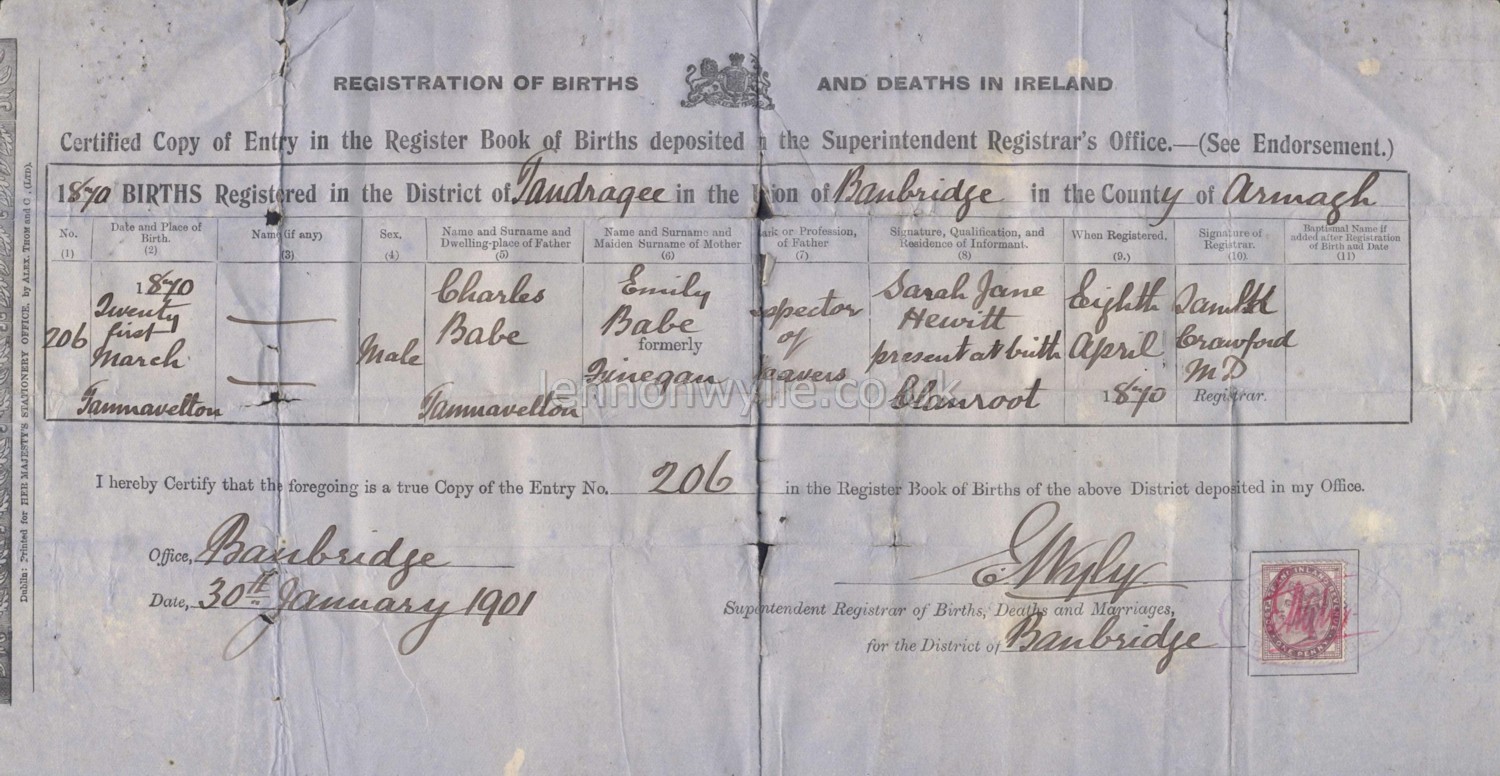 REGISTRATION OF BIRTHS AND DEATHS IN IRELAND
Certified Copy of Entry in the Register Book of Births deposited in the Superintendent Registrar's Office.—(See Endorsement.)
1870 BIRTHS Registered in the District of Tandragee in the Union of Banbridge in the County of Armagh
No. (1)
Date and Place of Birth. (2)
Name (if any) (3)
Sex. (4)
Name and Surname and Dwelling-place of Father (5)
Name and Surname and Maiden Surname of Mother (6)
Rank or Profession, of Father (7)
Signature, Qualification, and Residence of Informant. (8)
When Registered. (9.)
Signature of Registrar. (10).
Baptismal Name if added after Registration of Birth and Date (11)
206
1870
Twenty
first
March
Tamnavelton
Male
Charles
Babe
Tamnavelton
Emily
Babe
formerly
Finegan
Inspector
of
Weavers
Sarah Jane
Hewitt
present at birth
Clanroot
Eighth
April
1870
Crawford
MD
Registrar.
I hereby Certify that the foregoing is a true Copy of the Entry No. 206 in the Register Book of Births of the above District deposited in my Office.
Office, Banbridge
Date, 30th January 1901
E Wyly
Superintendent Registrar of Births, Deaths and Marriages,
for the District of Banbridge
Dublin: Printed for HER MAJESTY'S STATIONERY OFFICE, by ALEX. THOM and C. (LTD).
lennonwylie.co.uk